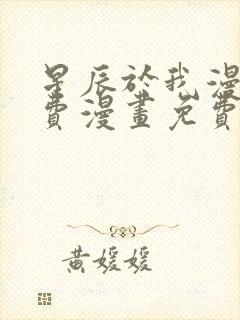 星辰於我漫
費漫畫免費
黃媛媛